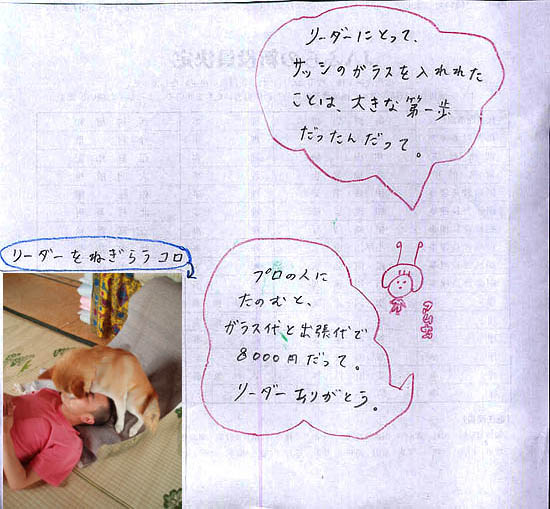 リーダーにとって、
サッシのガラスを入れれた
ことは、大きな第一歩
だったんだって。
リーダーをねぎらうコロ
プロの人に
たのむと、
ガラス代と出張代で
8000円だって。
リーダーありがとう。